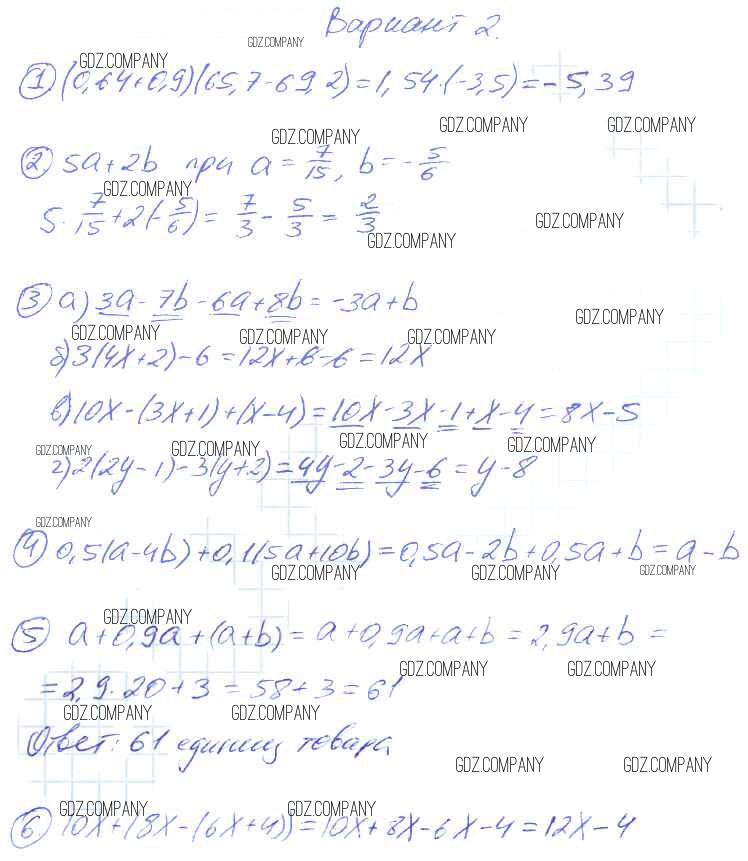 Вариант 2.
GDZ.COMPANY
GDZ.COMPANY
① (0,64+0,9)(65,7-69,2)=1,54·(-3,5)=-5,39
GDZ.COMPANY GDZ.COMPANY GDZ.COMPANY
② 5a+2b при a=7/15, b=-5/6
GDZ.COMPANY
5·7/15+2(-5/6)=7/3-5/3=2/3
GDZ.COMPANY GDZ.COMPANY
③ а) 3a-7b-6a+8b=-3a+b
GDZ.COMPANY
GDZ.COMPANY GDZ.COMPANY GDZ.COMPANY
б) 3(4x+2)-6=12x+6-6=12x
в) 10x-(3x+1)+(x-4)=10x-3x-1+x-4=8x-5
GDZ.COMPANY GDZ.COMPANY GDZ.COMPANY GDZ.COMPANY
г) 2(2y-1)-3(y+2)=4y-2-3y-6=y-8
GDZ.COMPANY
④ 0,5(a-4b)+0,1(5a+10b)=0,5a-2b+0,5a+b=a-b
GDZ.COMPANY GDZ.COMPANY GDZ.COMPANY
GDZ.COMPANY
⑤ a+0,9a+(a+b)=a+0,9a+a+b=2,9a+b=
GDZ.COMPANY GDZ.COMPANY
=2,9·20+3=58+3=61
GDZ.COMPANY GDZ.COMPANY
Ответ: 61 единиц товара
GDZ.COMPANY GDZ.COMPANY
GDZ.COMPANY GDZ.COMPANY
⑥ 10x+(8x-(6x+4))=10x+8x-6x-4=12x-4